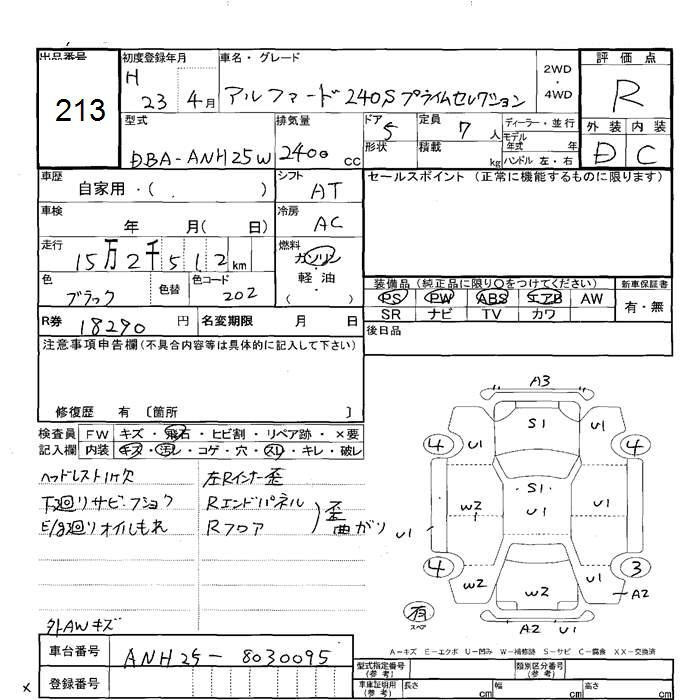 出品番号 初度登録年月 車名・グレード 2WD・4WD 評価点
213 H 23 4月 アルファード240Sプライムセレクション R
型式 排気量 ドア 5 定員 7人 ディーラー・並行 外装 内装
DBA-ANH25W 2400cc 形状 積載 kg モデル年式 年 D C
ハンドル 左・右
車歴 自家用・( ) シフト AT セールスポイント(正常に機能するものに限ります)
車検 年 月( 日) 冷房 AC
走行 15万2千512km 燃料 ガソリン・軽・油 ( )
色 ブラック 色替 色コード 202 装備品(純正品に限り○をつけてください) 新車保証書
PS PW ABS エアB AW 有・無
SR ナビ TV カワ
R券 18290円 名変期限 月 日 後日品
注意事項申告欄(不具合内容等は具体的に記入して下さい)
修復歴 有 〔箇所 〕
検査員 FW キズ・飛石・ヒビ割・リペア跡・×要
記入欄 内装 キズ・汚レ・コゲ・穴・スリ・キレ・破レ
ヘッドレスト1ケ欠 左Rインナー歪
下廻リサビ・フショク Rエンドパネル
E/g廻リオイルもれ Rフロア 歪 曲がり
外AWキズ
A3
S1
U1 U1
4 4
S1
W2 U1 U1
U1
4 3
W2 W2 U1
A2
有 スペア
A2 U1
A-キズ E-エクボ U-凹み W-補修跡 S-サビ C-腐食 XX-交換済
車台番号 ANH25-8030095 型式指定番号(参考) 類別区分番号(参考)
登録番号 車庫証明用(参考) 長さ cm 幅 cm 高さ cm
x